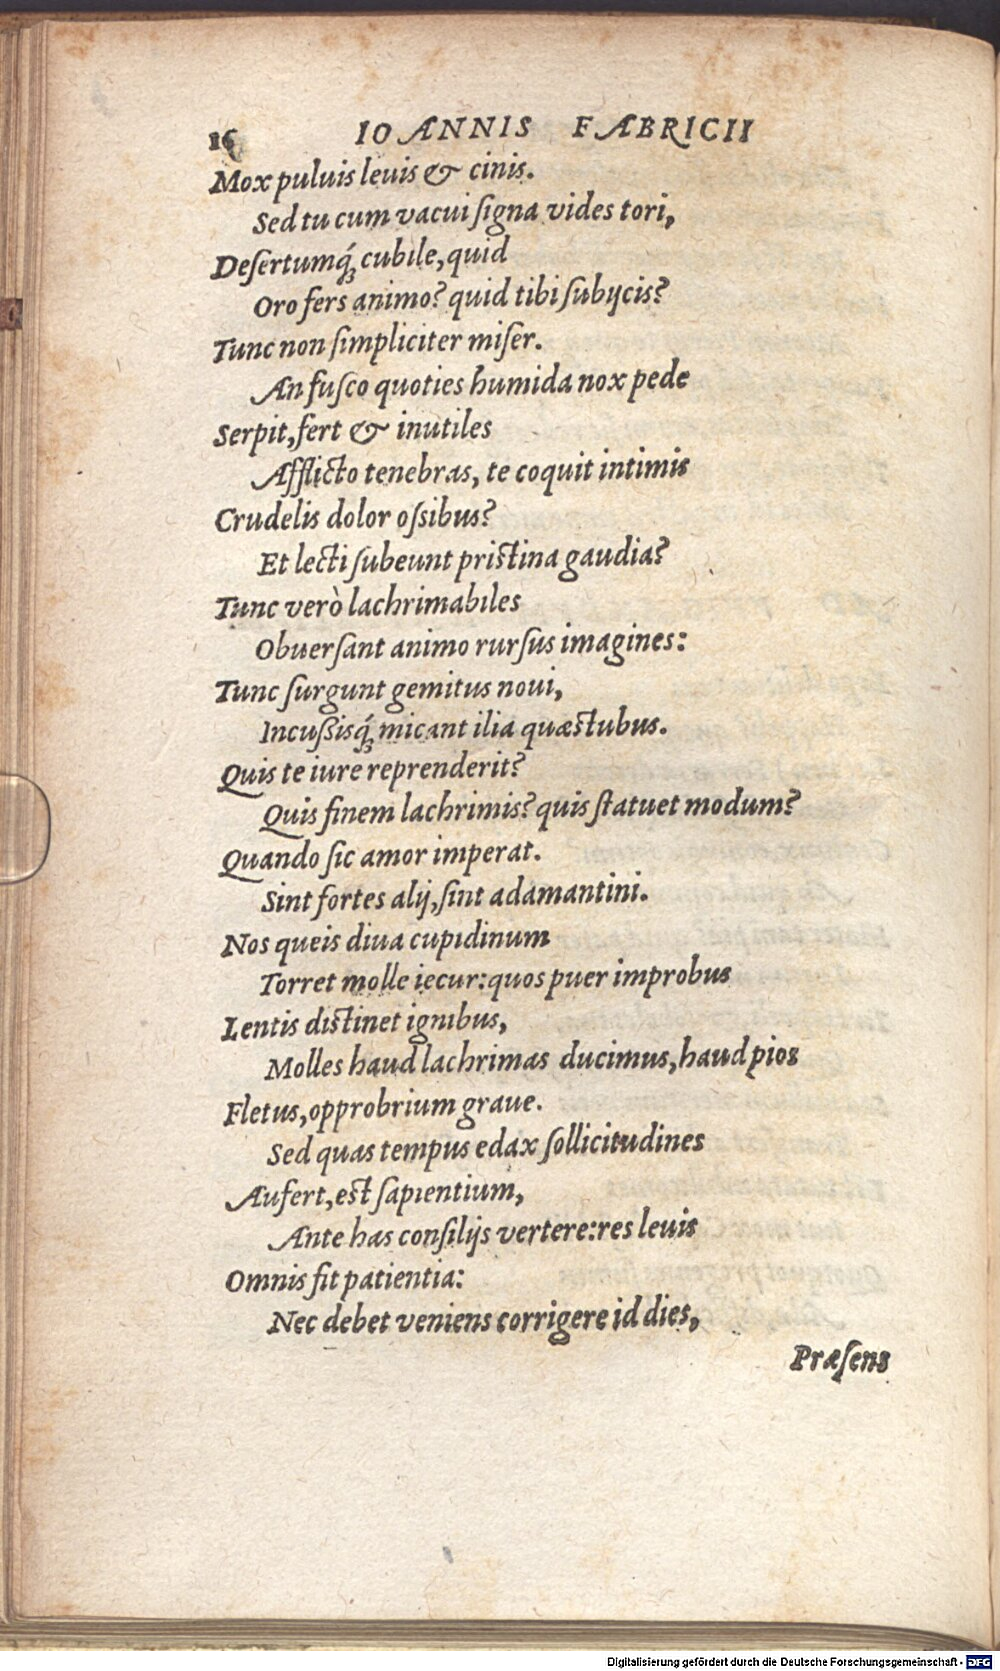 16 IOANNIS FABRICII
Mox puluis leuis & cinis.
Sed tu cum vacui ſigna vides tori,
Deſertumq́; cubile, quid
Oro fers animo? quid tibi ſubijcis?
Tunc non ſimpliciter miſer.
An fuſco quoties humida nox pede
Serpit, fert & inutiles
Afflicto tenebras, te coquit intimis
Crudelis dolor oſsibus?
Et lecti ſubeunt priſtina gaudia?
Tunc verò lachrimabiles
Obuerſant animo rurſus imagines:
Tunc ſurgunt gemitus noui,
Incußisq́; micant ilia quæſtubus.
Quis te iure reprenderit?
Quis finem lachrimis? quis ſtatuet modum?
Quando ſic amor imperat.
Sint fortes alij, ſint adamantini.
Nos queis diua cupidinum
Torret molle iecur: quos puer improbus
Lentis diſtinet ignibus,
Molles haud lachrimas ducimus, haud pios
Fletus, opprobrium graue.
Sed quas tempus edax ſollicitudines
Aufert, eſt ſapientium,
Ante has conſilijs vertere: res leuis
Omnis fit patientia:
Nec debet veniens corrigere id dies,
Præſens
Digitalisierung gefördert durch die Deutsche Forschungsgemeinschaft - DFG